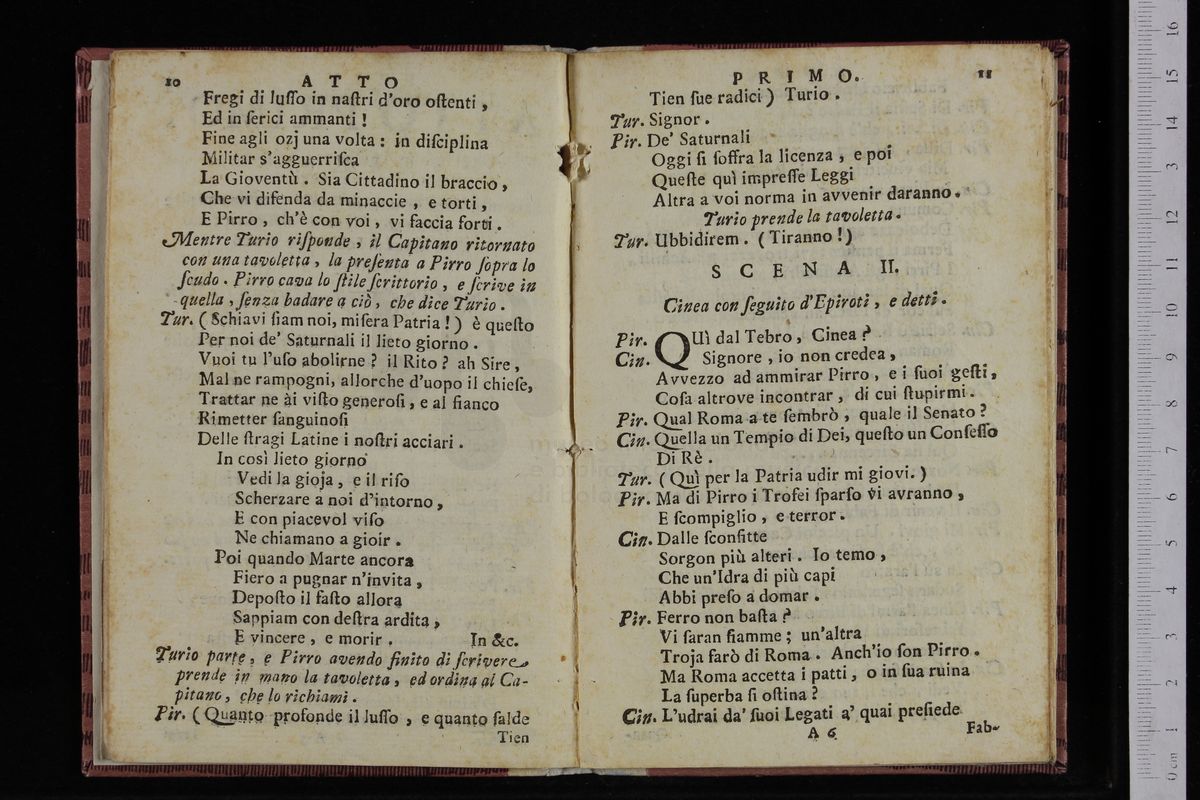 10 ATTO
Fregi di luſſo in naſtri d'oro oſtenti,
Ed in ſerici ammanti!
Fine agli ozj una volta: in diſciplina
Militar s'agguerriſca
La Gioventù. Sia Cittadino il braccio,
Che vi difenda da minaccie, e torti,
E Pirro, ch'è con voi, vi faccia forti.
Mentre Turio riſponde, il Capitano ritornato
con una tavoletta, la preſenta a Pirro ſopra lo
ſcudo. Pirro cava lo ſtile ſcrittorio, e ſcrive in
quella, ſenza badare a ciò, che dice Turio.
Tur. (Schiavi ſiam noi, miſera Patria!) è queſto
Per noi de' Saturnali il lieto giorno.
Vuoi tu l'uſo abolirne? il Rito? ah Sire,
Mal ne rampogni, allorche d'uopo il chieſe,
Trattar ne ài viſto generoſi, e al fianco
Rimetter ſanguinoſi
Delle ſtragi Latine i noſtri acciari.
In così lieto giorno
Vedi la gioja, e il riſo
Scherzare a noi d'intorno,
E con piacevol viſo
Ne chiamano a gioir.
Poi quando Marte ancora
Fiero a pugnar n'invita,
Depoſto il faſto allora
Sappiam con deſtra ardita,
E vincere, e morir. In &c.
Turio parte, e Pirro avendo finito di ſcrivere
prende in mano la tavoletta, ed ordina al Ca-
pitano, che lo richiami.
Pir. (Quanto profonde il luſſo, e quanto ſalde
Tien
PRIMO. 11
Tien ſue radici) Turio.
Tur. Signor.
Pir. De' Saturnali
Oggi ſi ſoffra la licenza, e poi
Queſte quì impreſſe Leggi
Altra a voi norma in avvenir daranno.
Turio prende la tavoletta.
Tur. Ubbidirem. (Tiranno!)
SCENA II.
Cinea con ſeguito d'Epiroti, e detti.
Pir. QUì dal Tebro, Cinea?
Cin. Signore, io non credea,
Avvezzo ad ammirar Pirro, e i ſuoi geſti,
Coſa altrove incontrar, di cui ſtupirmi.
Pir. Qual Roma a te ſembrò, quale il Senato?
Cin. Quella un Tempio di Dei, queſto un Conſeſſo
Di Rè.
Tur. (Quì per la Patria udir mi giovi.)
Pir. Ma di Pirro i Trofei ſparſo vi avranno,
E ſcompiglio, e terror.
Cin. Dalle ſconfitte
Sorgon più alteri. Io temo,
Che un'Idra di più capi
Abbi preſo a domar.
Pir. Ferro non baſta?
Vi ſaran fiamme; un'altra
Troja farò di Roma. Anch'io ſon Pirro.
Ma Roma accetta i patti, o in ſua ruina
La ſuperba ſi oſtina?
Cin. L'udrai da' ſuoi Legati a' quai preſiede
A 6 Fab-